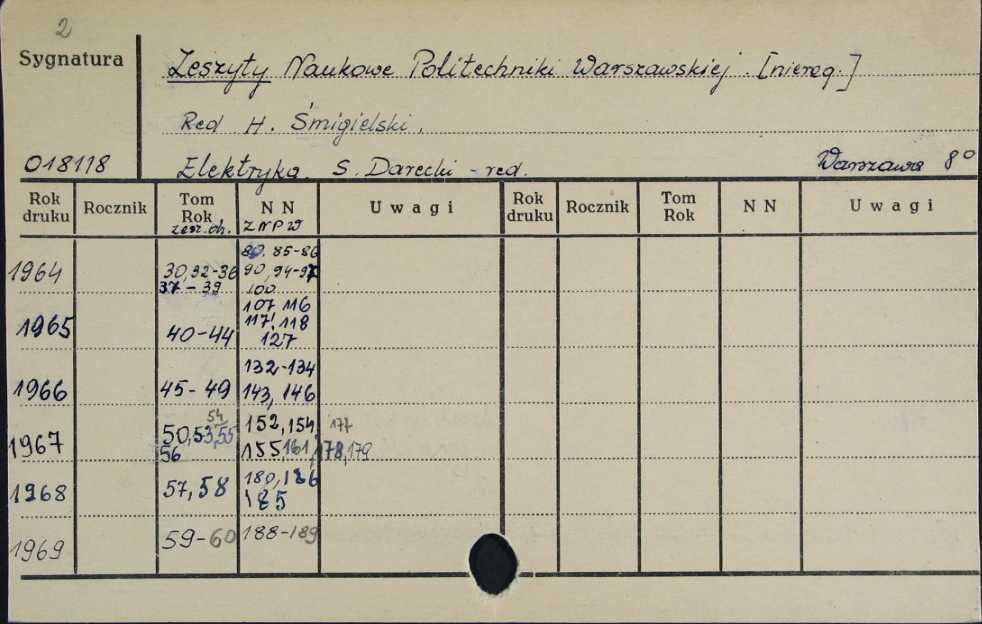 2
Sygnatura
Zeszyty Naukowe Politechniki Warszawskiej. [niereg.]
Red H. Śmigielski.
018118
Elektryka. S. Darecki - red.
Warszawa 8°
Rok druku Rocznik Tom Rok zesz. ch. NN ZNPW Uwagi Rok druku Rocznik Tom Rok NN Uwagi
85-86
1964 30,32-36 90,94-97
37-39 100
107 116
1965 117, 118
40-44 127
132-134
1966 45-49 143, 146
54
1967 50,53,55 152,154, 177
56 155,161, 178,179
1968 57,58 180,186
185
1969 59-60 188-189